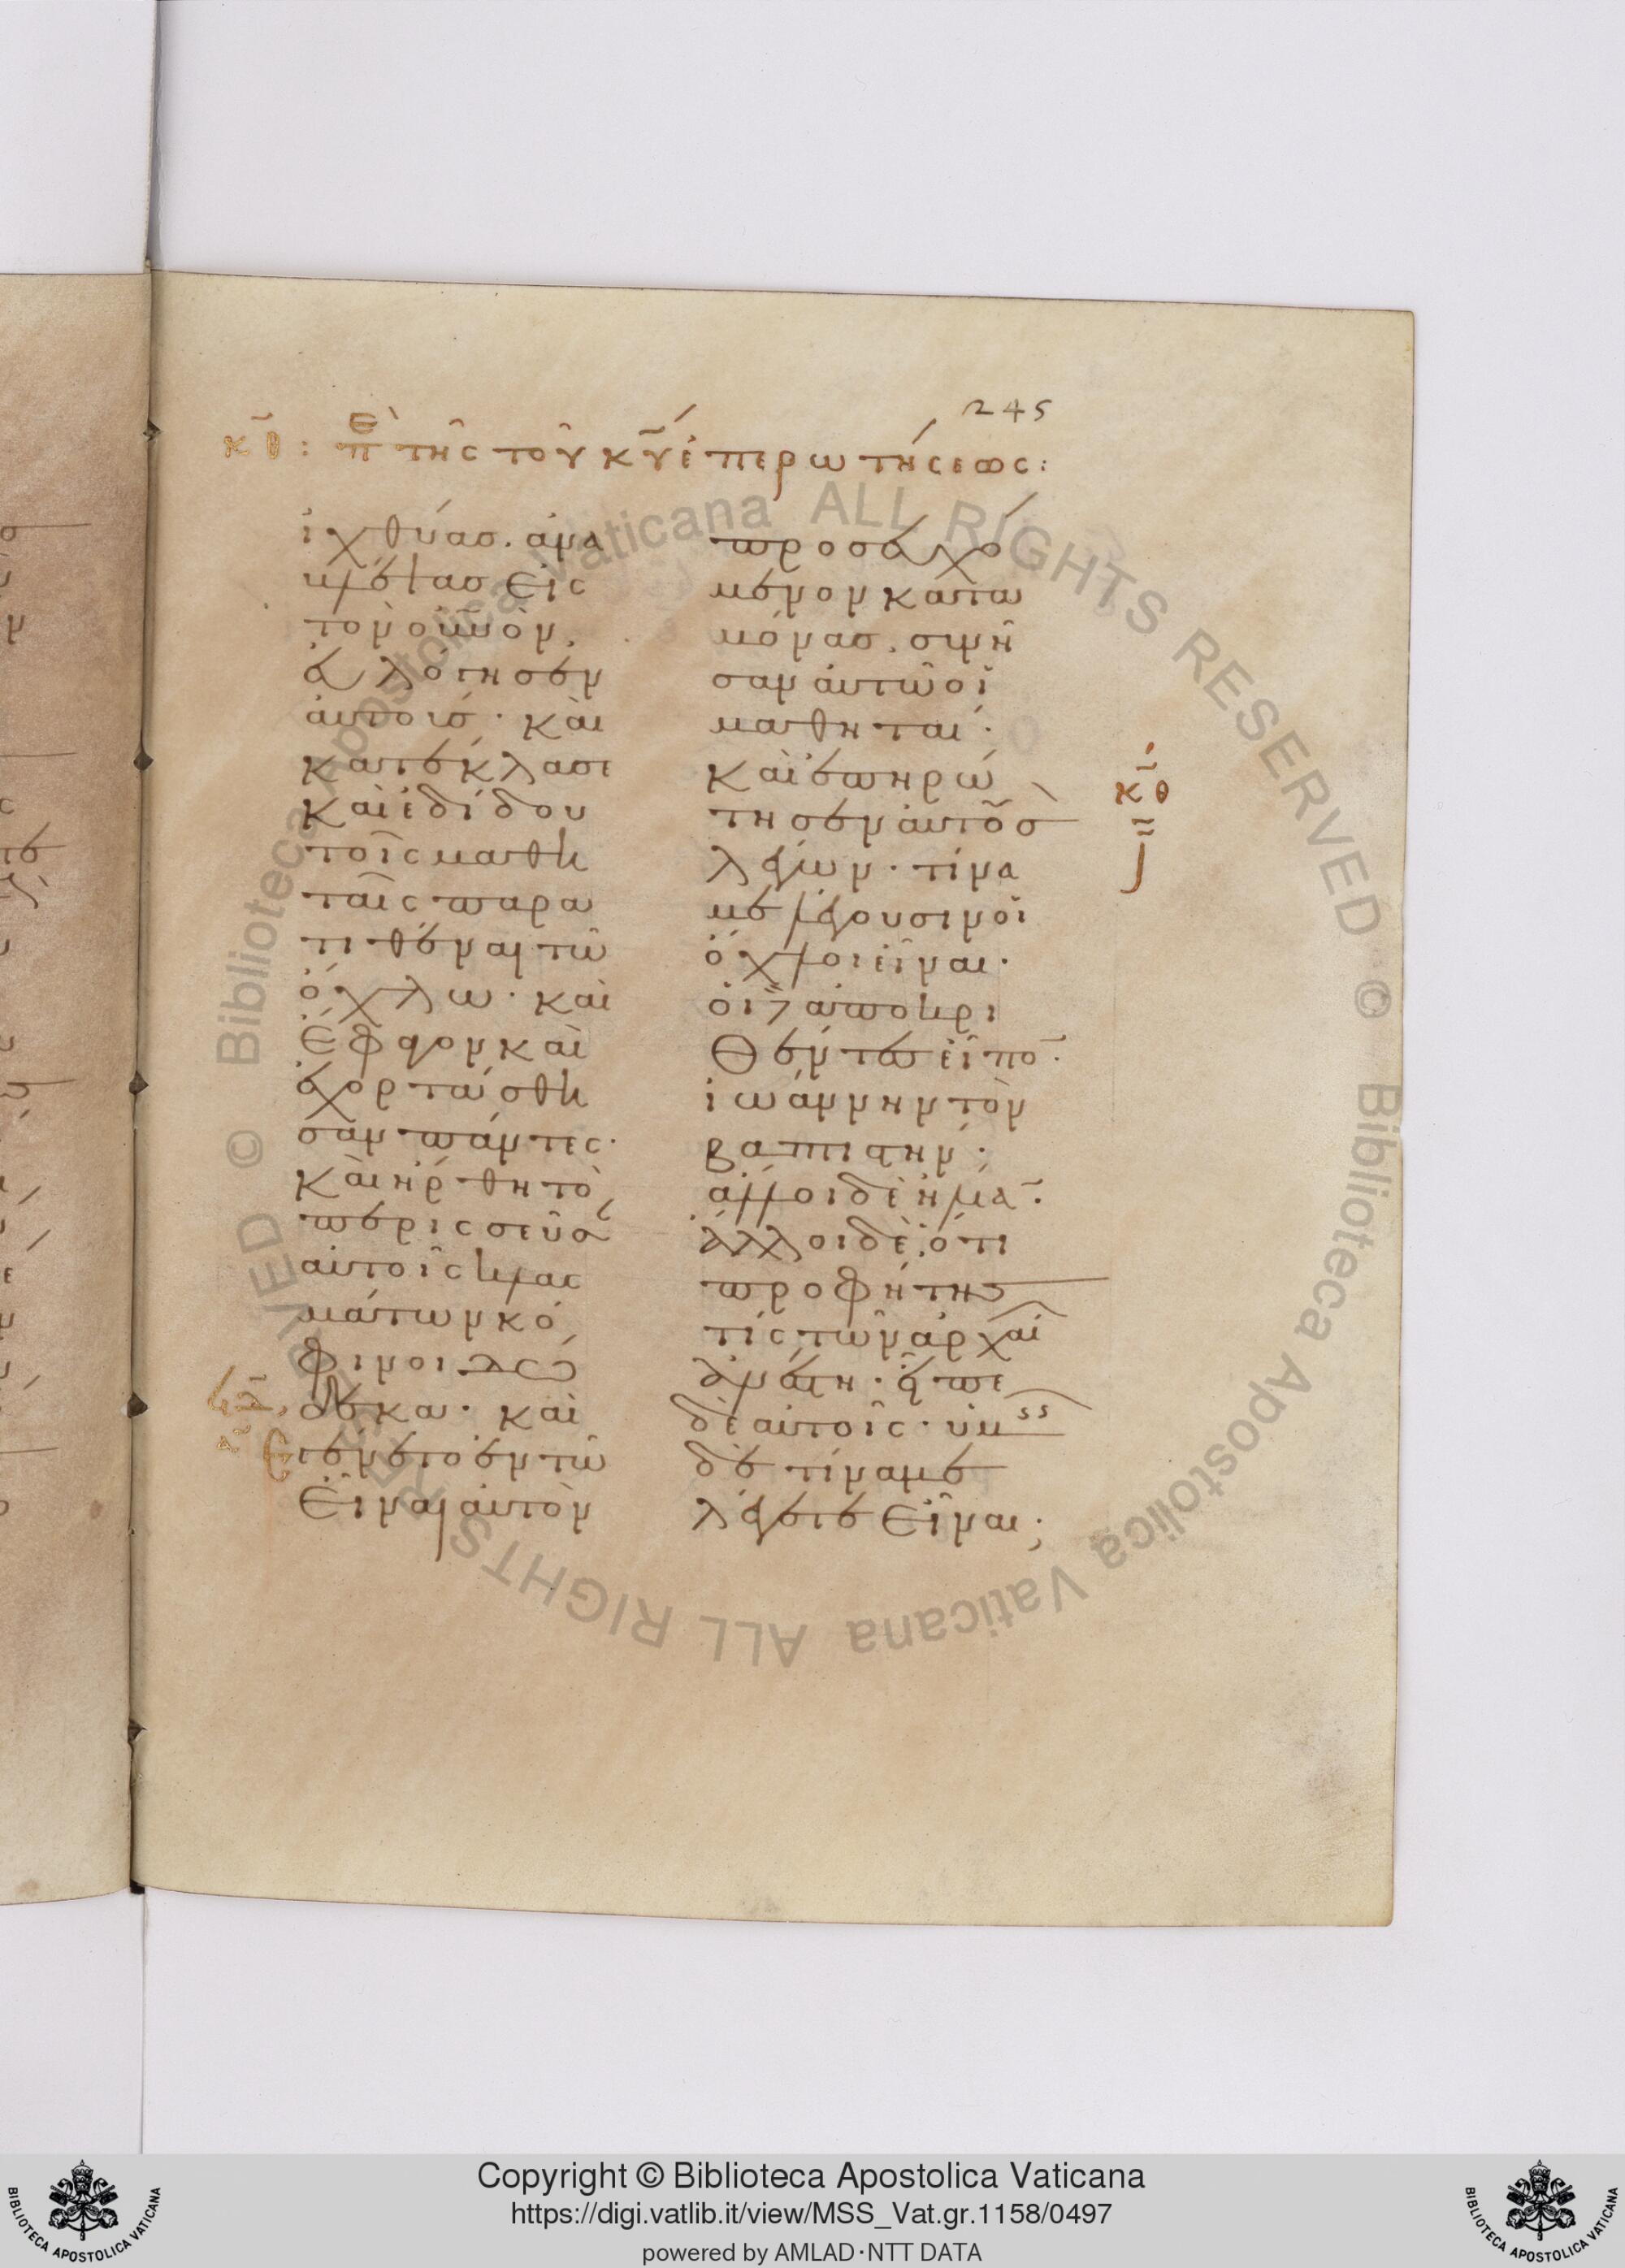 245
κ̅θ̅ : πὲ τῆς τοῦ κ̅υ̅ ἐπερωτήσεως :
ἰχθύασ. ἀνα
βλέψασ εἰς
τὸν οὐνὸν,
εὐλόγησεν
ἀυτοισ · κὰι
κατέκλασε
καὶ ἐδίδου
τοῖς μαθη
ταῖς παρα
τιθέναι τῶ
ὄχλω · καὶ
ἔφαγον καὶ
ἐχορτάσθη
σαν πάντες ·
κὰι ἤρθη τὸ
περισσεῦσα
αὐτοῖς κλας
μάτων κό
φινοι δω
δεκα · καὶ
ἐγένετο ἐν τῶ
εἶναι ἀυτὸν
προσευχό
μενον κατα
μόνασ, συνῆ
σαν ἀυτῶ οἱ
μαθηταί ·
καὶ ἐπηρώ
τησεν ἀυτοῦσ
λέγων · τίνα
με λέγουσιν οἱ
ὄχλοι εἶναι ·
οἱ δὲ ἀποκρι
θέντεσ εἶπο̅ ·
ἰωάννην τὸν
βαπτιστὴν ·
ἄλλοι δὲ ἠλία̅ ·
ἄλλοι δὲ, ὅτι
προφήτησ
τίς τῶν ἀρχαί
ἀνέστη · εἶπε
δὲ αὐτοῖς · ὑμ
δὲ τίνα με
λέγετε εἶναι ;
κ̅θ̅
Copyright © Biblioteca Apostolica Vaticana
https://digi.vatlib.it/view/MSS_Vat.gr.1158/0497
powered by AMLAD·NTT DATA
BIBLIOTECA APOSTOLICA VATICANA
BIBLIOTECA APOSTOLICA VATICANA